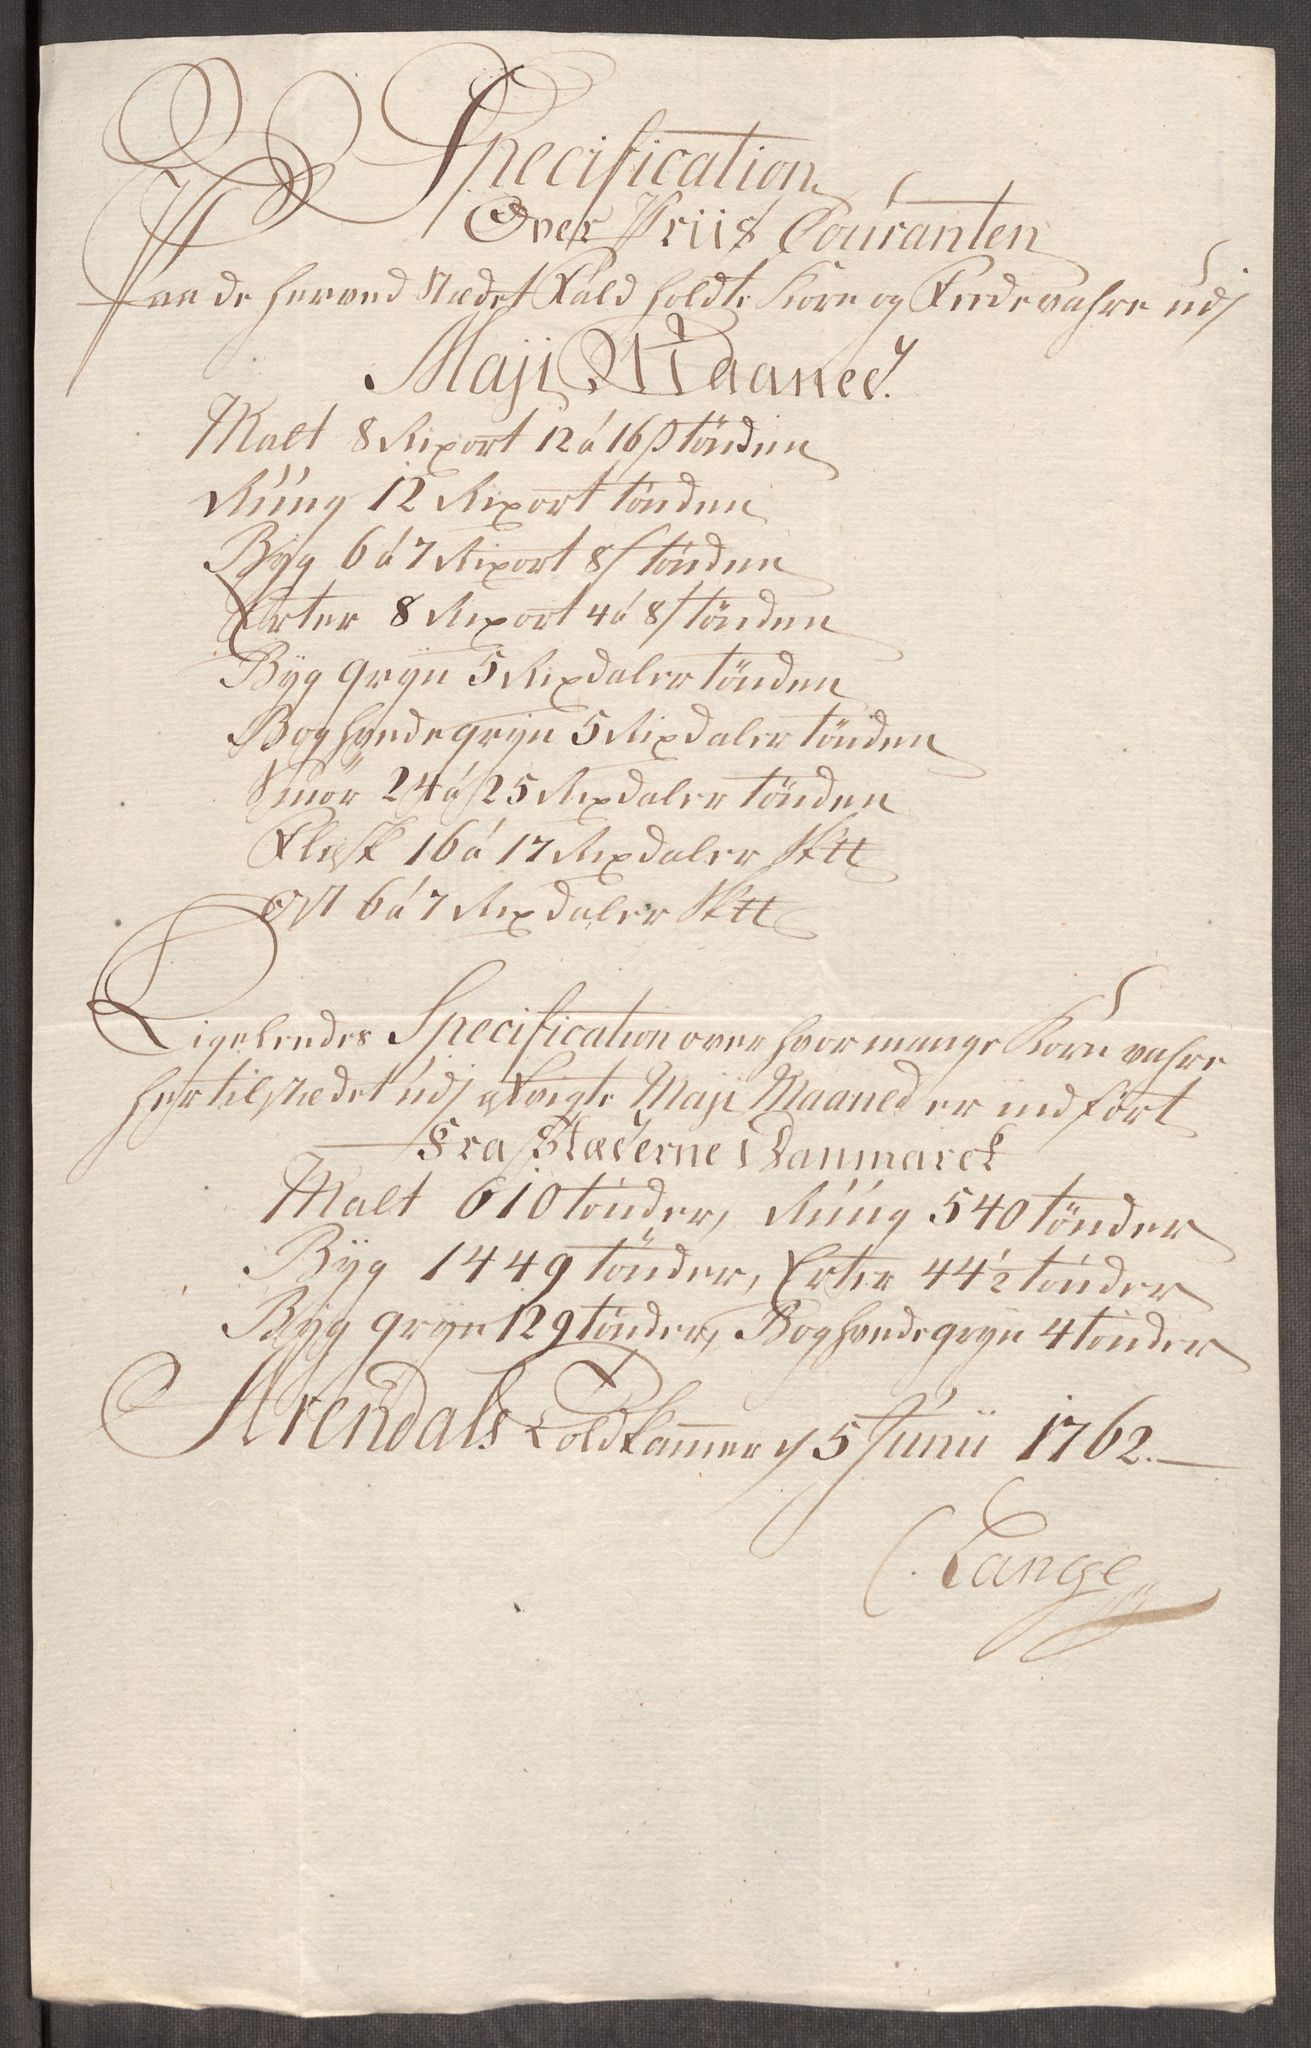 Specification
Over Priis Couranten
Paa de herved Stædet Fald holdte Korn og Fede vahre udj
Maji Maaned.
Malt 8 Rixort 12 á 16 s tönden
Rúúg 12 Rixort tönden
Bÿg 6 á 7 Rixort 8 s tönden
Erter 8 Rixort 4 á 8 s tönden
Bÿg grÿn 5 Rixdaler tönden
Boghvedegrÿn 5 Rixdaler tönden
Smör 24 á 25 Rixdaler tönden
Flesk 16 á 17 Rixdaler Sktt
Ost 6 á 7 Rixdaler Sktt
Ligeleedes Specification over hvor mange Korn vahre
her til stædet udj afvigte Maji Maaned er indfört
Fra Stæderne i Danmarck
Malt 610 tönder, Rúúg 540 tönder
Bÿg 1449 tönder, Erter 44½ tönder
Bÿg grÿn 129 tönder, Boghvedegrÿn 4 tönder
Arendals Toldkammer d 5 Junii 1762.
C. Lange